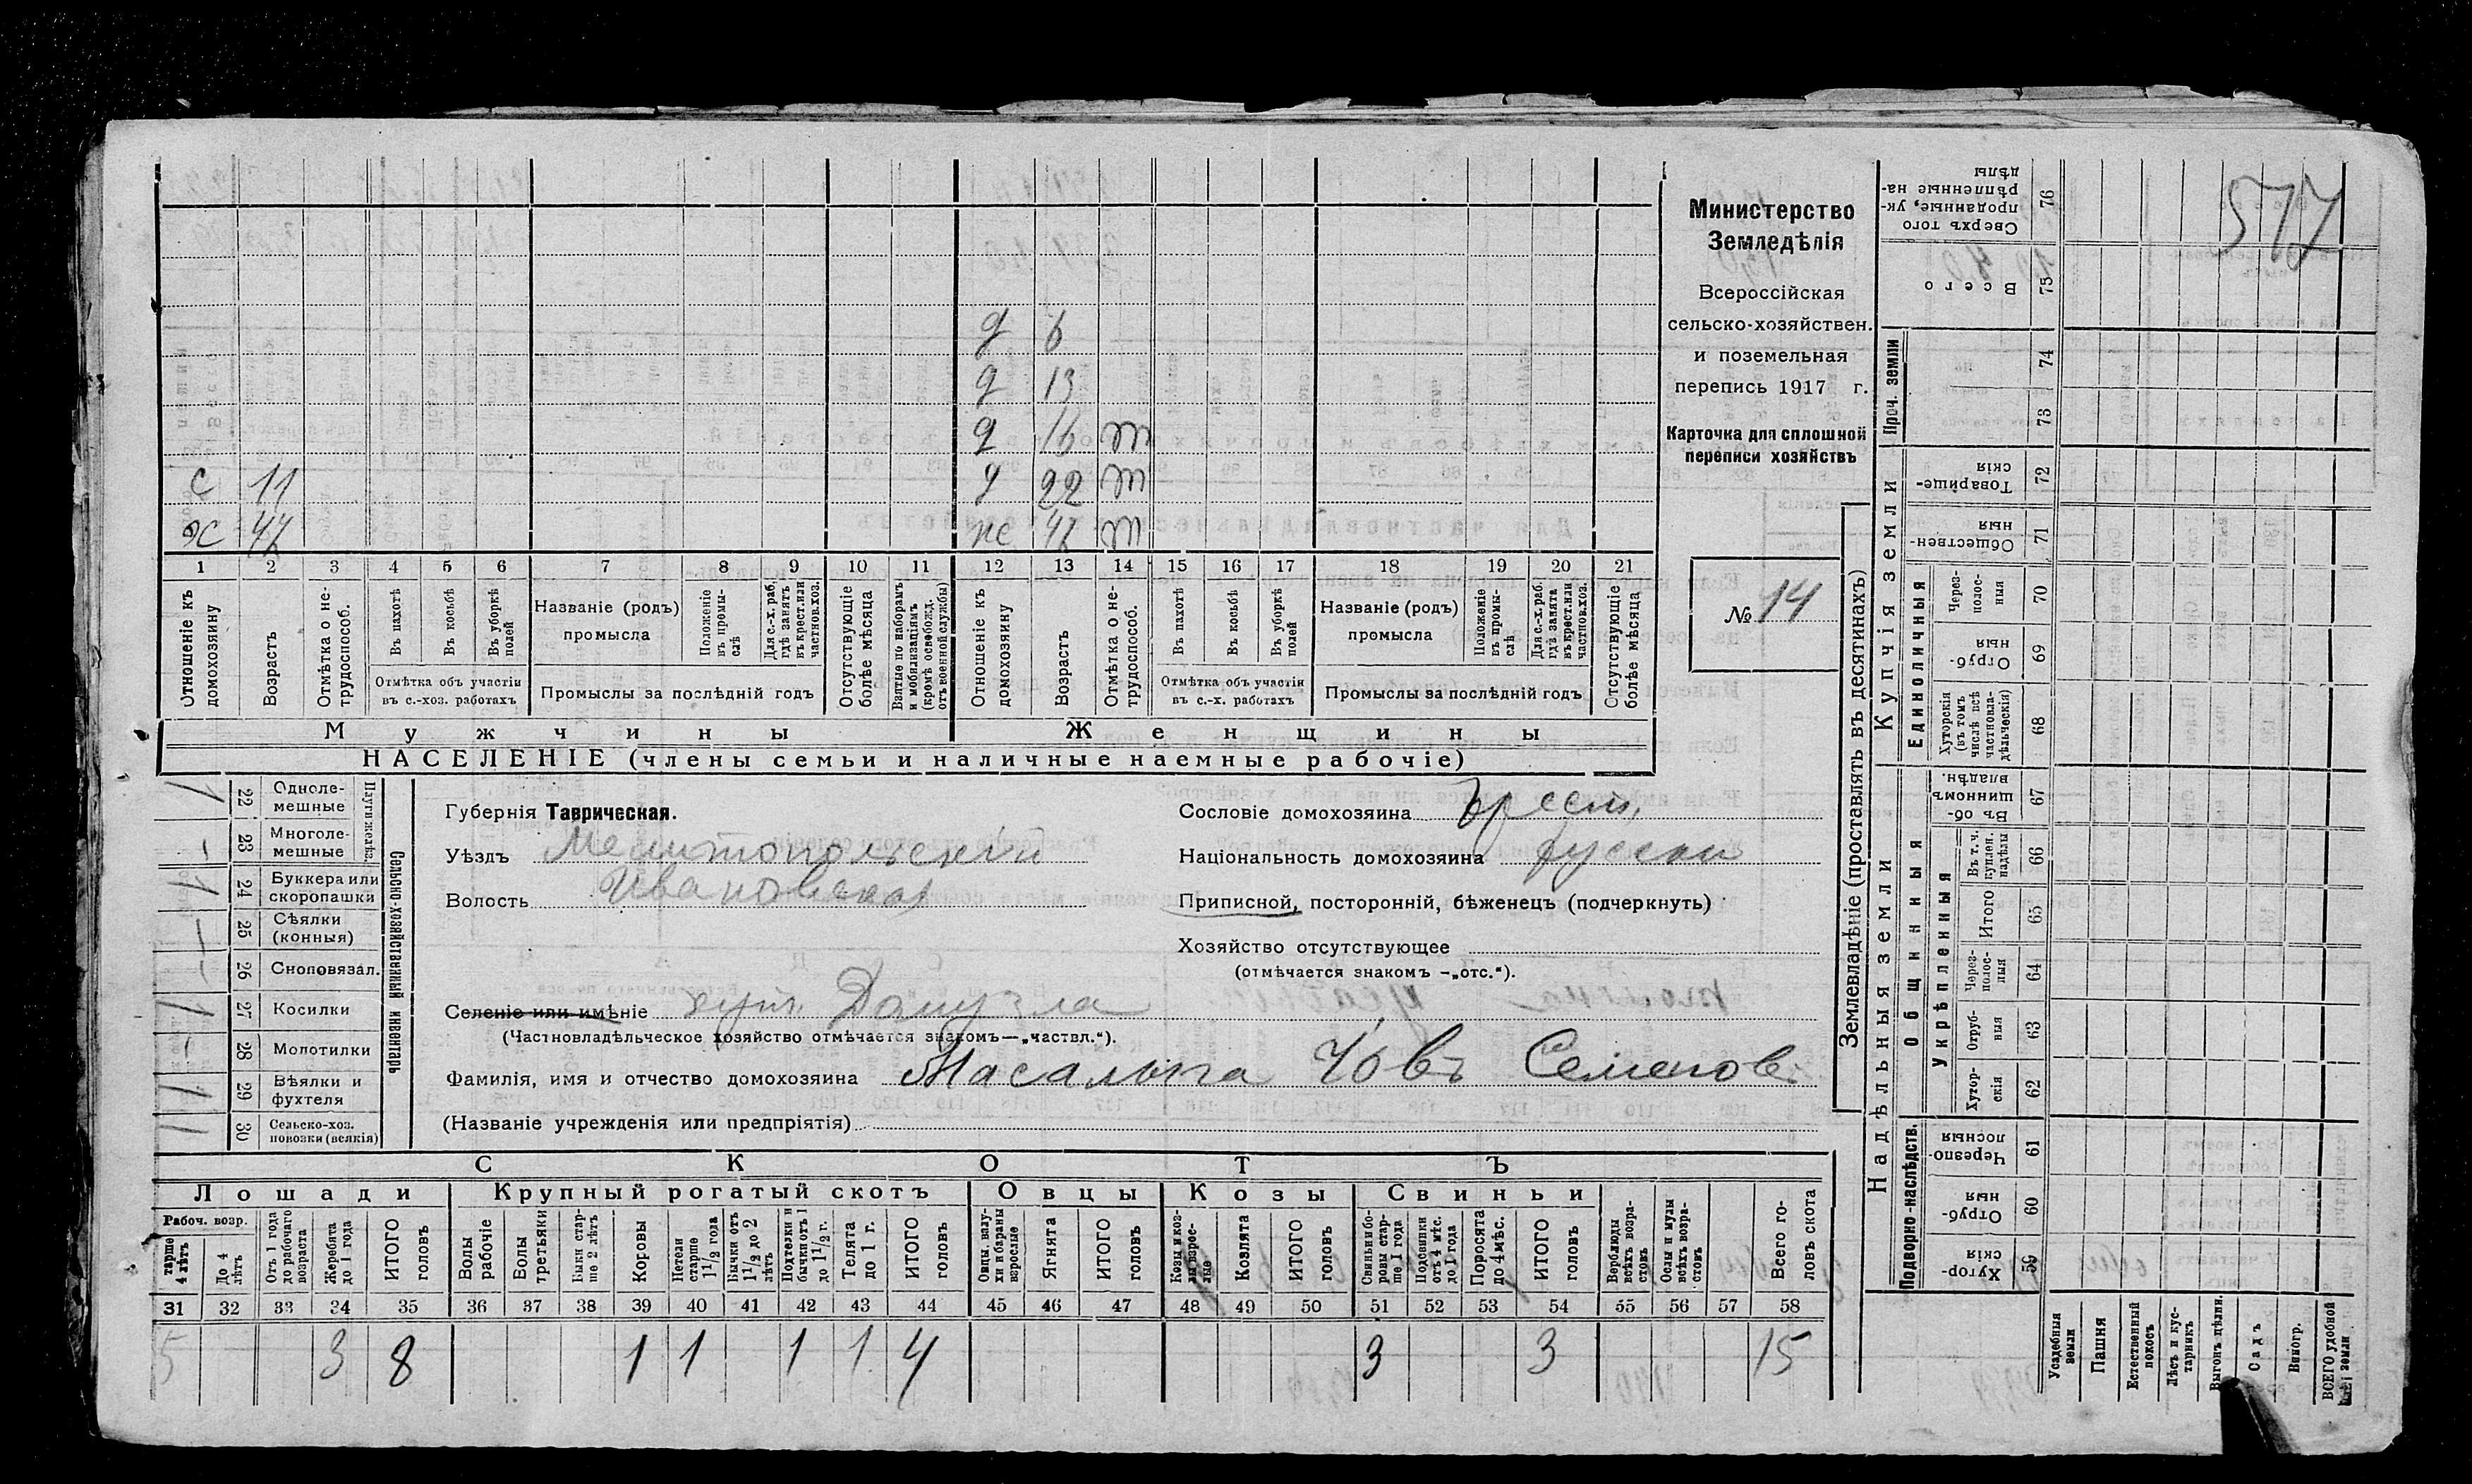 577
Министерство
Земледѣлія
Всероссійская
сельско-хозяйствен.
и поземельная
перепись 1917 г.
Карточка для сплошной
переписи хозяйствъ
№ 14
д 6
д 13
д 16 т
с 11 д 22 т
47 47 т
1 2 3 4 5 6 7 8 9 10 11 12 13 14 15 16 17 18 19 20 21
Отношеніе къ домохозяину
Возрастъ
Отмѣтка о нетрудоспособ.
Въ пахотѣ
Въ косьбѣ
Въ уборкѣ полей
Отмѣтка объ участіи въ с.-хоз. работахъ
Названіе (родъ) промысла
Положеніе въ промыслѣ
Для с.-х. раб. гдѣ занятъ въ крест. или частнов. хоз.
Промыслы за послѣдній годъ
Отсутствующіе болѣе мѣсяца
Взятые по наборамъ и мобилизаціямъ (кромѣ освобожд. отъ военной службы)
Отношеніе къ домохозяину
Возрастъ
Отмѣтка о нетрудоспособ.
Въ пахотѣ
Въ косьбѣ
Въ уборкѣ полей
Отмѣтка объ участіи въ с.-х. работахъ
Названіе (родъ) промысла
Положеніе въ промыслѣ
Для с.-х. раб. гдѣ занята въ крест. или частнов. хоз.
Промыслы за послѣдній годъ
Отсутствующіе болѣе мѣсяца
Мужчины Женщины
НАСЕЛЕНІЕ (члены семьи и наличные наемные рабочіе)
Сельско-хозяйственный инвентарь
Плуги желѣз.
22 Однолемешные 1
23 Многолемешные –
24 Буккера или скоропашки 1
25 Сѣялки (конныя) –
26 Сноповязал. –
27 Косилки 1
28 Молотилки –
29 Вѣялки и фухтеля 1
30 Сельско-хоз. повозки (всякія)
Губернія Таврическая.
Уѣздъ Мелитопольскій
Волость Ивановская
Селеніе или имѣніе хут. Домузла
(Частновладѣльческое хозяйство отмѣчается знакомъ—„частвл.“).
Фамилія, имя и отчество домохозяина Масалыга Іовъ Семенов.
(Названіе учрежденія или предпріятія)
Сословіе домохозяина крест.
Національность домохозяина русскій
Приписной, посторонній, бѣженецъ (подчеркнуть)
Хозяйство отсутствующее
(отмѣчается знакомъ –„отс.“).
СКОТЪ
Лошади Крупный рогатый скотъ Овцы Козы Свиньи
Рабоч. возр.
тарше 4 лѣтъ
До 4 лѣтъ
Отъ 1 года до рабочаго возраста
Жеребята до 1 года
ИТОГО головъ
Волы рабочіе
Волы третьяки
Быки старше 2 лѣтъ
Коровы
Нетели старше 1½ года
Бычки отъ 1½ до 2 лѣтъ
Подтелки и бычки отъ 1 до 1½ г.
Телята до 1 г.
ИТОГО головъ
Овцы, валухи и бараны взрослые
Ягнята
ИТОГО головъ
Козы и козлы взрослые
Козлята
ИТОГО головъ
Свиньи боровы старше 1 года
Подсвинки отъ 4 мѣс. до 1 года
Поросята до 4 мѣс.
ИТОГО головъ
Верблюды всѣхъ возрастовъ
Ослы и мулы всѣхъ возрастовъ
Всего головъ скота
31 32 33 34 35 36 37 38 39 40 41 42 43 44 45 46 47 48 49 50 51 52 53 54 55 56 57 58
5 3 8 1 1 1 1 4 3 3 15
Землевладѣніе (проставлять въ десятинахъ)
Надѣльныя земли
Купчія земли
Проч. земли
Подворно-наслѣдств.
Общинныя
Укрѣпленныя
Единоличныя
Сверхъ того проданные, укрѣпленные надѣлы 76
Всего 75
74
73
Товарищескія 72
Общественныя 71
Черезполосныя 70
Отрубныя 69
Хуторскія (въ томъ числѣ всѣ частновладѣльческія) 68
Въ общинномъ владѣн. 67
Въ т. ч. куплен. надѣлы 66
Итого 65
Черезполосныя 64
Отрубныя 63
Хуторскія 62
Черезполосныя 61
Отрубныя 60
Хуторскія 59
Усадебныя земли
Пашня
Естественный покосъ
Лѣсъ и кустарникъ
Выгонъ цѣлин.
Садъ
Виногр.
ВСЕГО удобной земли